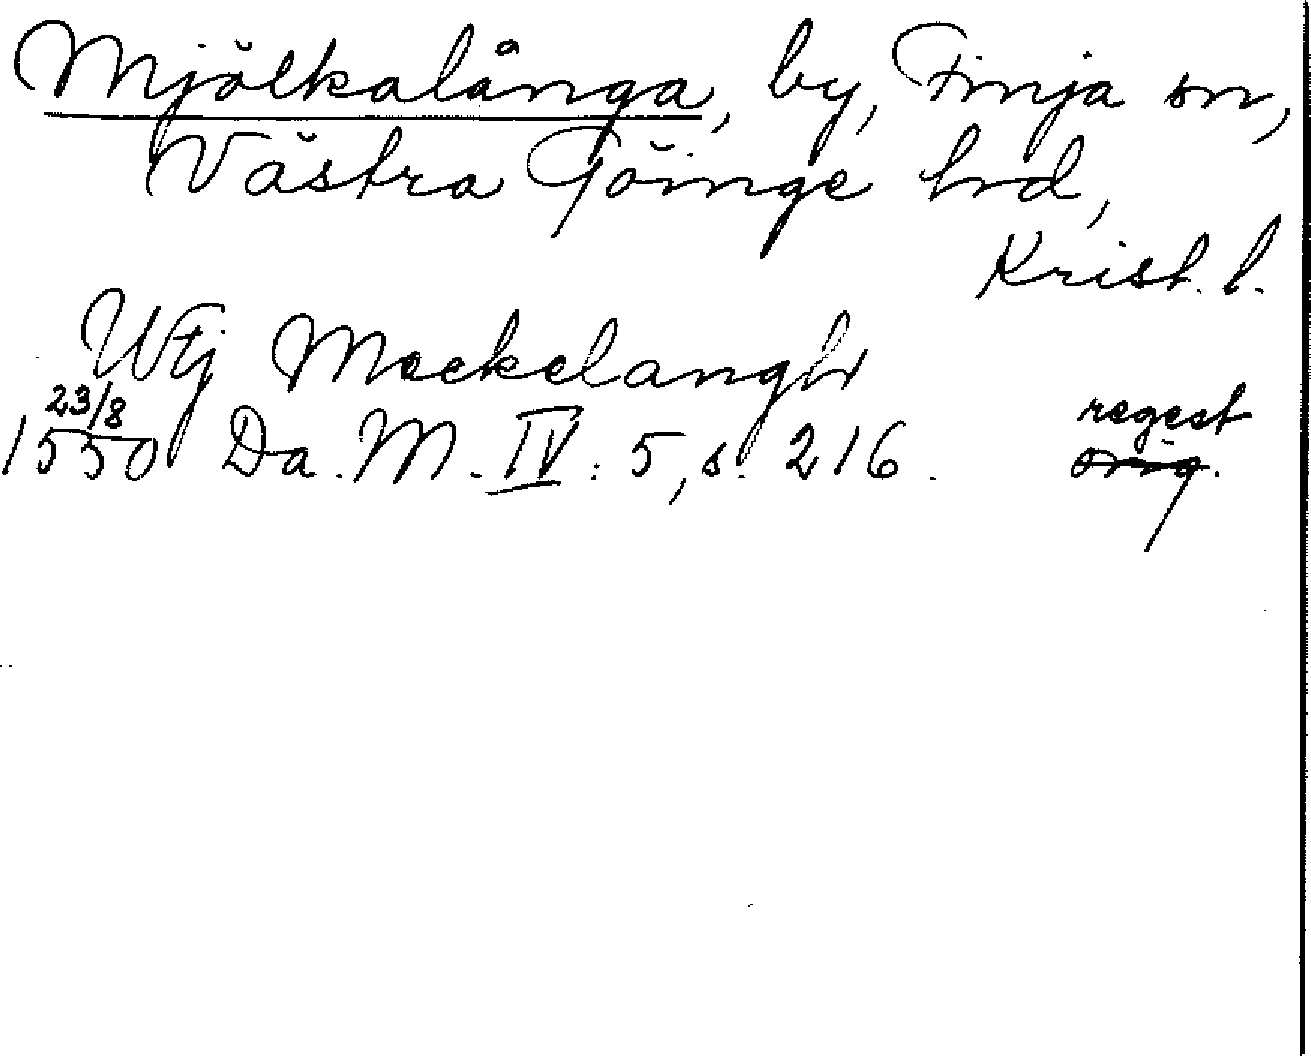 Mjölkalånga, by, Finja sn,
Västra Göinge hd,
Krist. l.
Utj Meckelangh
23/8 regest
1550 Da. M. IV : 5, s. 216. orig.